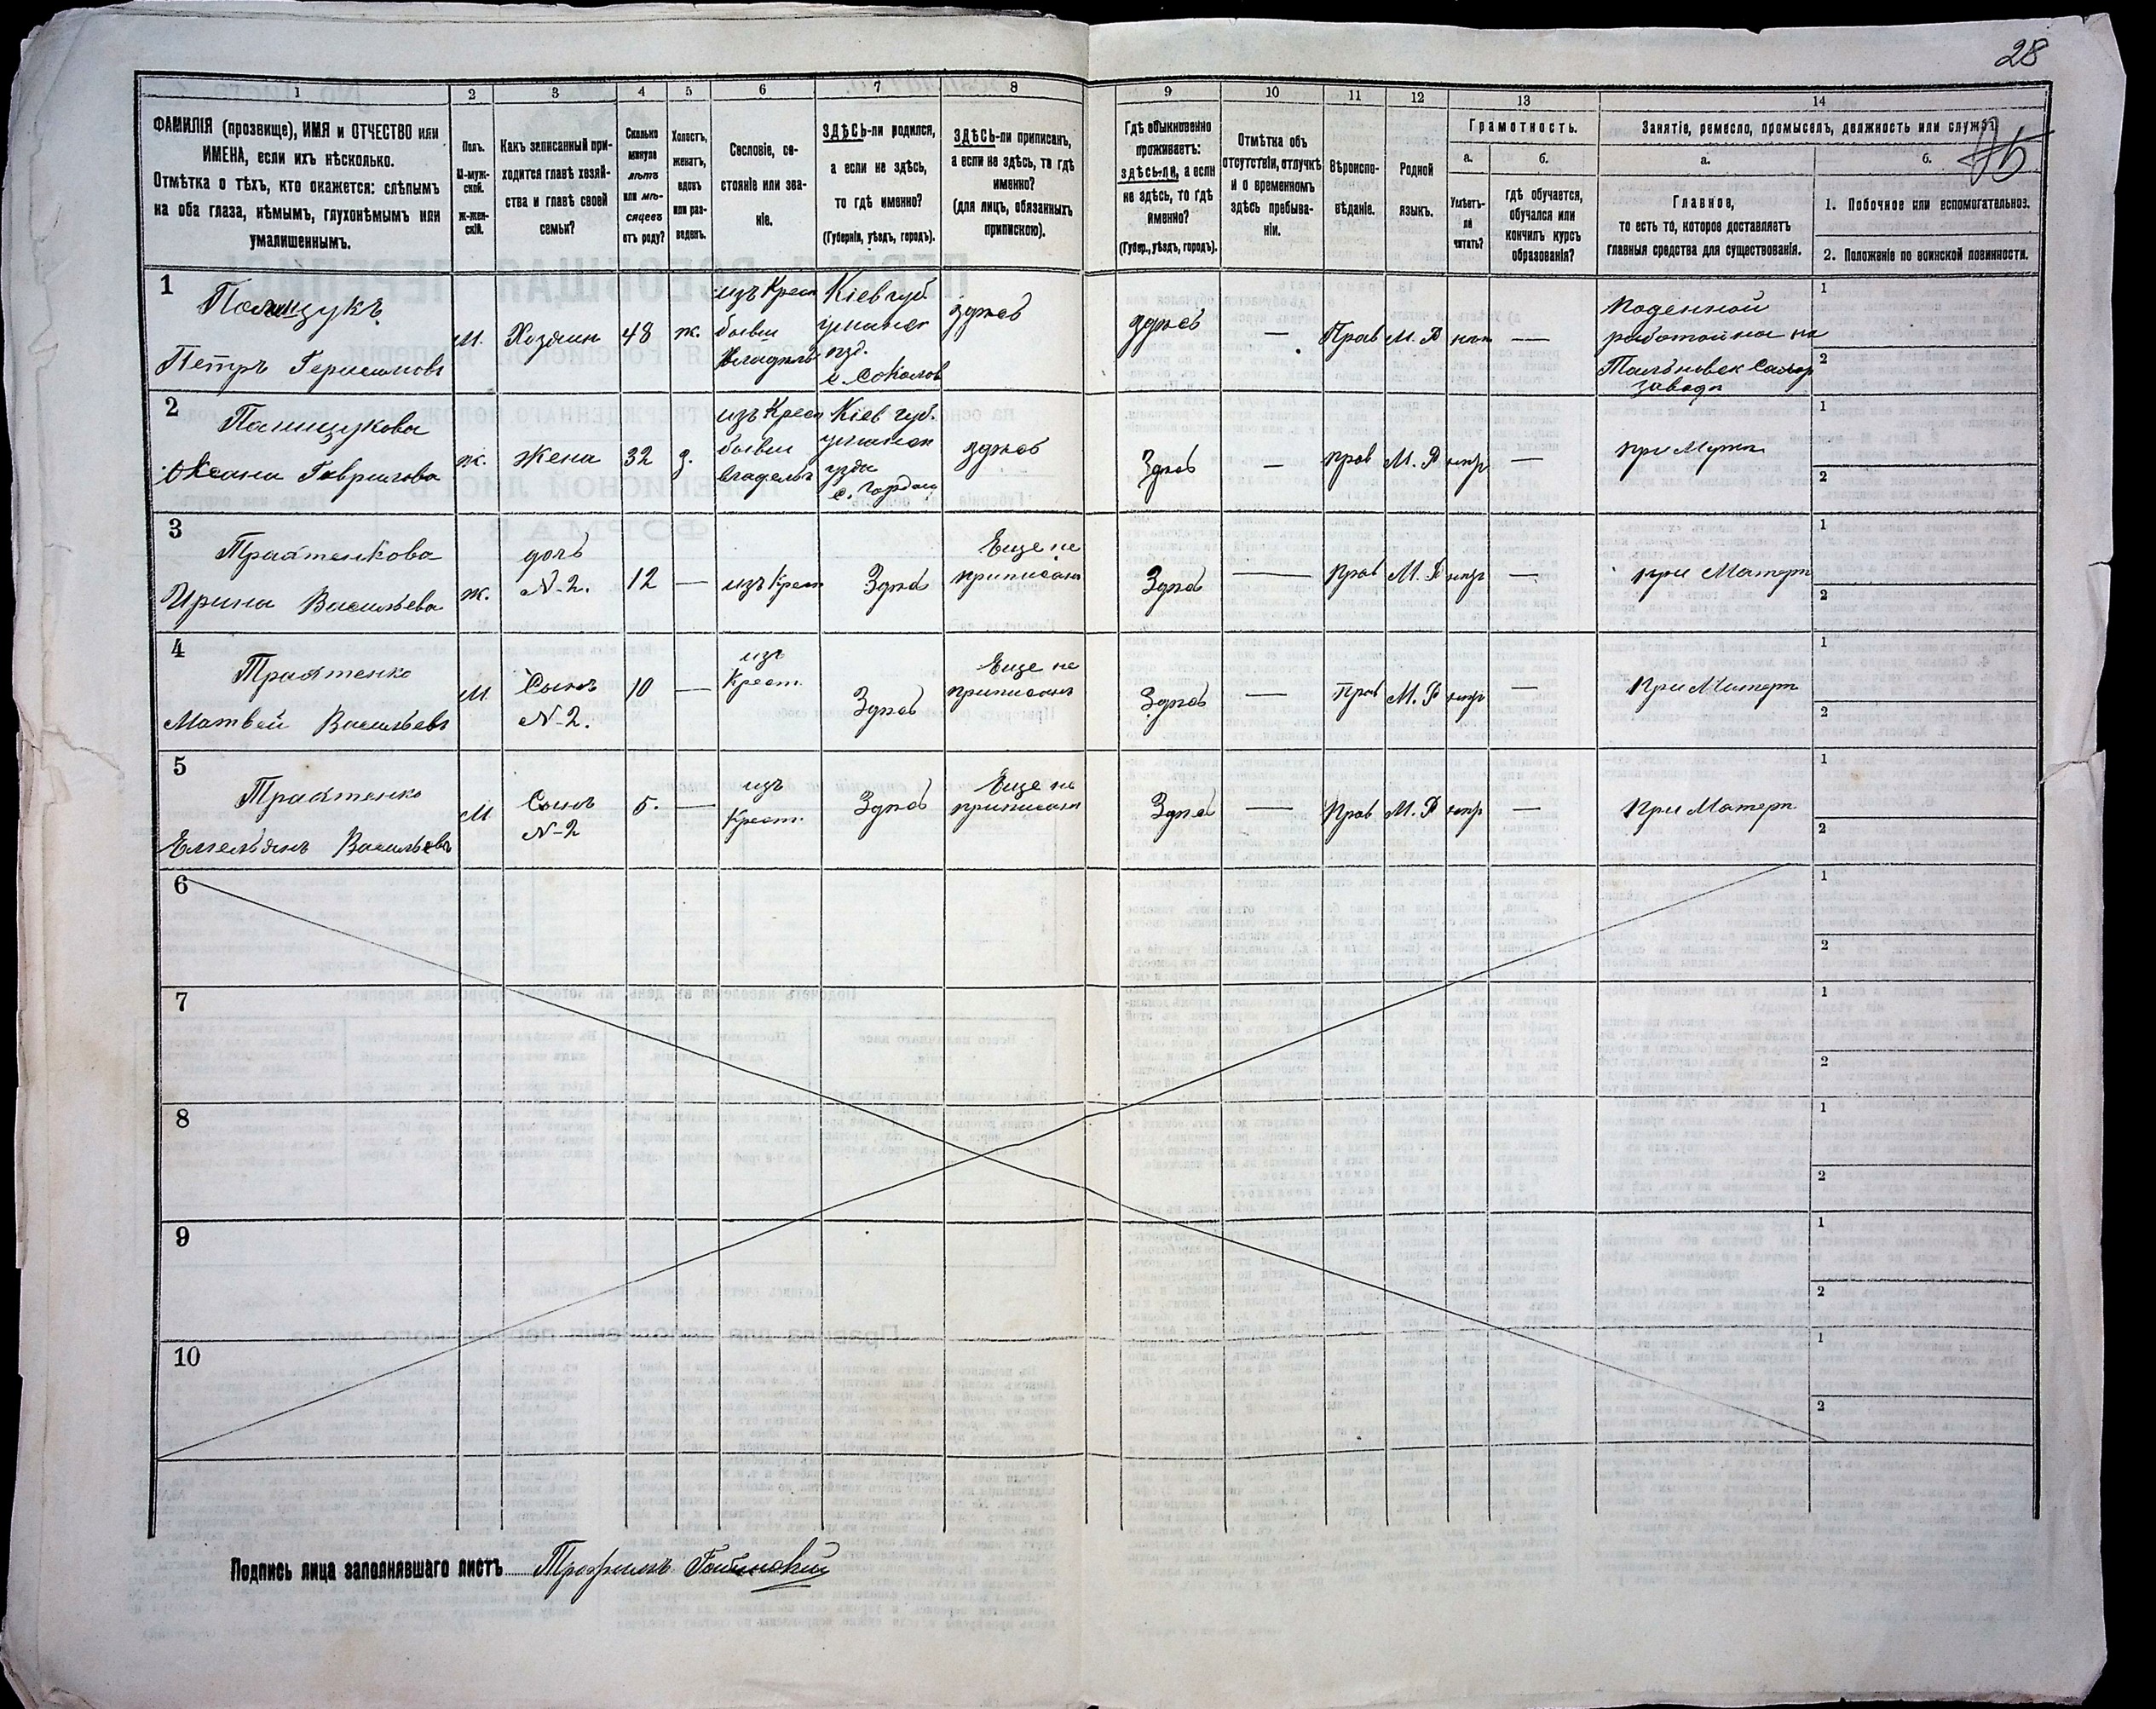 28
1 2 3 4 5 6 7 8 9 10 11 12 13 14
ФАМИЛІЯ (прозвище), ИМЯ и ОТЧЕСТВО или
ИМЕНА, если ихъ нѣсколько.
Отмѣтка о тѣхъ, кто окажется: слѣпымъ
на оба глаза, нѣмымъ, глухонѣмымъ или
умалишеннымъ.
Полъ.
М-муж-
ской.
Ж-жен-
скій.
Какъ записанный при-
ходится главѣ хозяй-
ства и главѣ своей
семьи?
Сколько
минуло
лѣтъ
или мѣ-
сяцевъ
отъ роду?
Холостъ,
женатъ,
вдовъ
или раз-
веденъ.
Сословіе, со-
стояніе или зва-
ніе.
ЗДѢСЬ-ли родился,
а если не здѣсь,
то гдѣ именно?
(Губернія, уѣздъ, городъ).
ЗДѢСЬ-ли приписанъ,
а если не здѣсь, то гдѣ
именно?
(для лицъ, обязанныхъ
припискою).
Гдѣ обыкновенно
проживаетъ:
здѣсь-ли, а если
не здѣсь, то гдѣ
именно?
(Губер., уѣздъ, городъ).
Отмѣтка объ
отсутствіи, отлучкѣ
и о временномъ
здѣсь пребыва-
ніи.
Вѣроиспо-
вѣданіе.
Родной
языкъ.
Грамотность.
а.
Умѣетъ-
ли
читать?
б.
гдѣ обучается,
обучался или
кончилъ курсъ
образованія?
Занятіе, ремесло, промыселъ, должность или служба.
а.
Главное,
то есть то, которое доставляетъ
главныя средства для существованія.
б.
1. Побочное или вспомогательное.
2. Положеніе по воинской повинности.
1
Полищукъ
Петръ Герасимовъ
М.
Хозяин
48
ж.
изъ Крест
бывш
Владѣль
Кіев губ.
уманск
уѣзд.
с. Соколов
здѣсь
здѣсь
—
Прав
М. Р
нѣт
—
Поденной
работой на
Тальновск Сахар
заводѣ
1
2
2
Полищукова
Оксана Гаврилова
ж.
Жена
32
з.
изъ Крест
бывш
владѣль
Кіев губ.
уманск
уѣзда
здѣсь
Здѣсь
—
прав
М. Р
—
при Мужѣ
1
2
3
Ирина Васильева
ж.
дочь
N-2.
12
—
изъ Крест
Здѣсь
Еще не
приписана
Здѣсь
—
прав
М. Р
—
при Матери
1
2
4
Матвей Васильевъ
М
Сынъ
N-2.
10
—
изъ
Крест.
Здѣсь
Еще не
приписанъ
Здѣсь
—
прав
М. Р
—
При Матери
1
2
5
Емельянъ Васильевъ
М
Сынъ
N-2
5.
—
изъ
Крест.
Здѣсь
Еще не
приписанъ
Здѣсь
—
Прав
М. Р
—
При Матери
1
2
6
1
2
7
1
2
8
1
2
9
1
2
10
1
2
Подпись лица заполнявшаго листъ Трофимъ